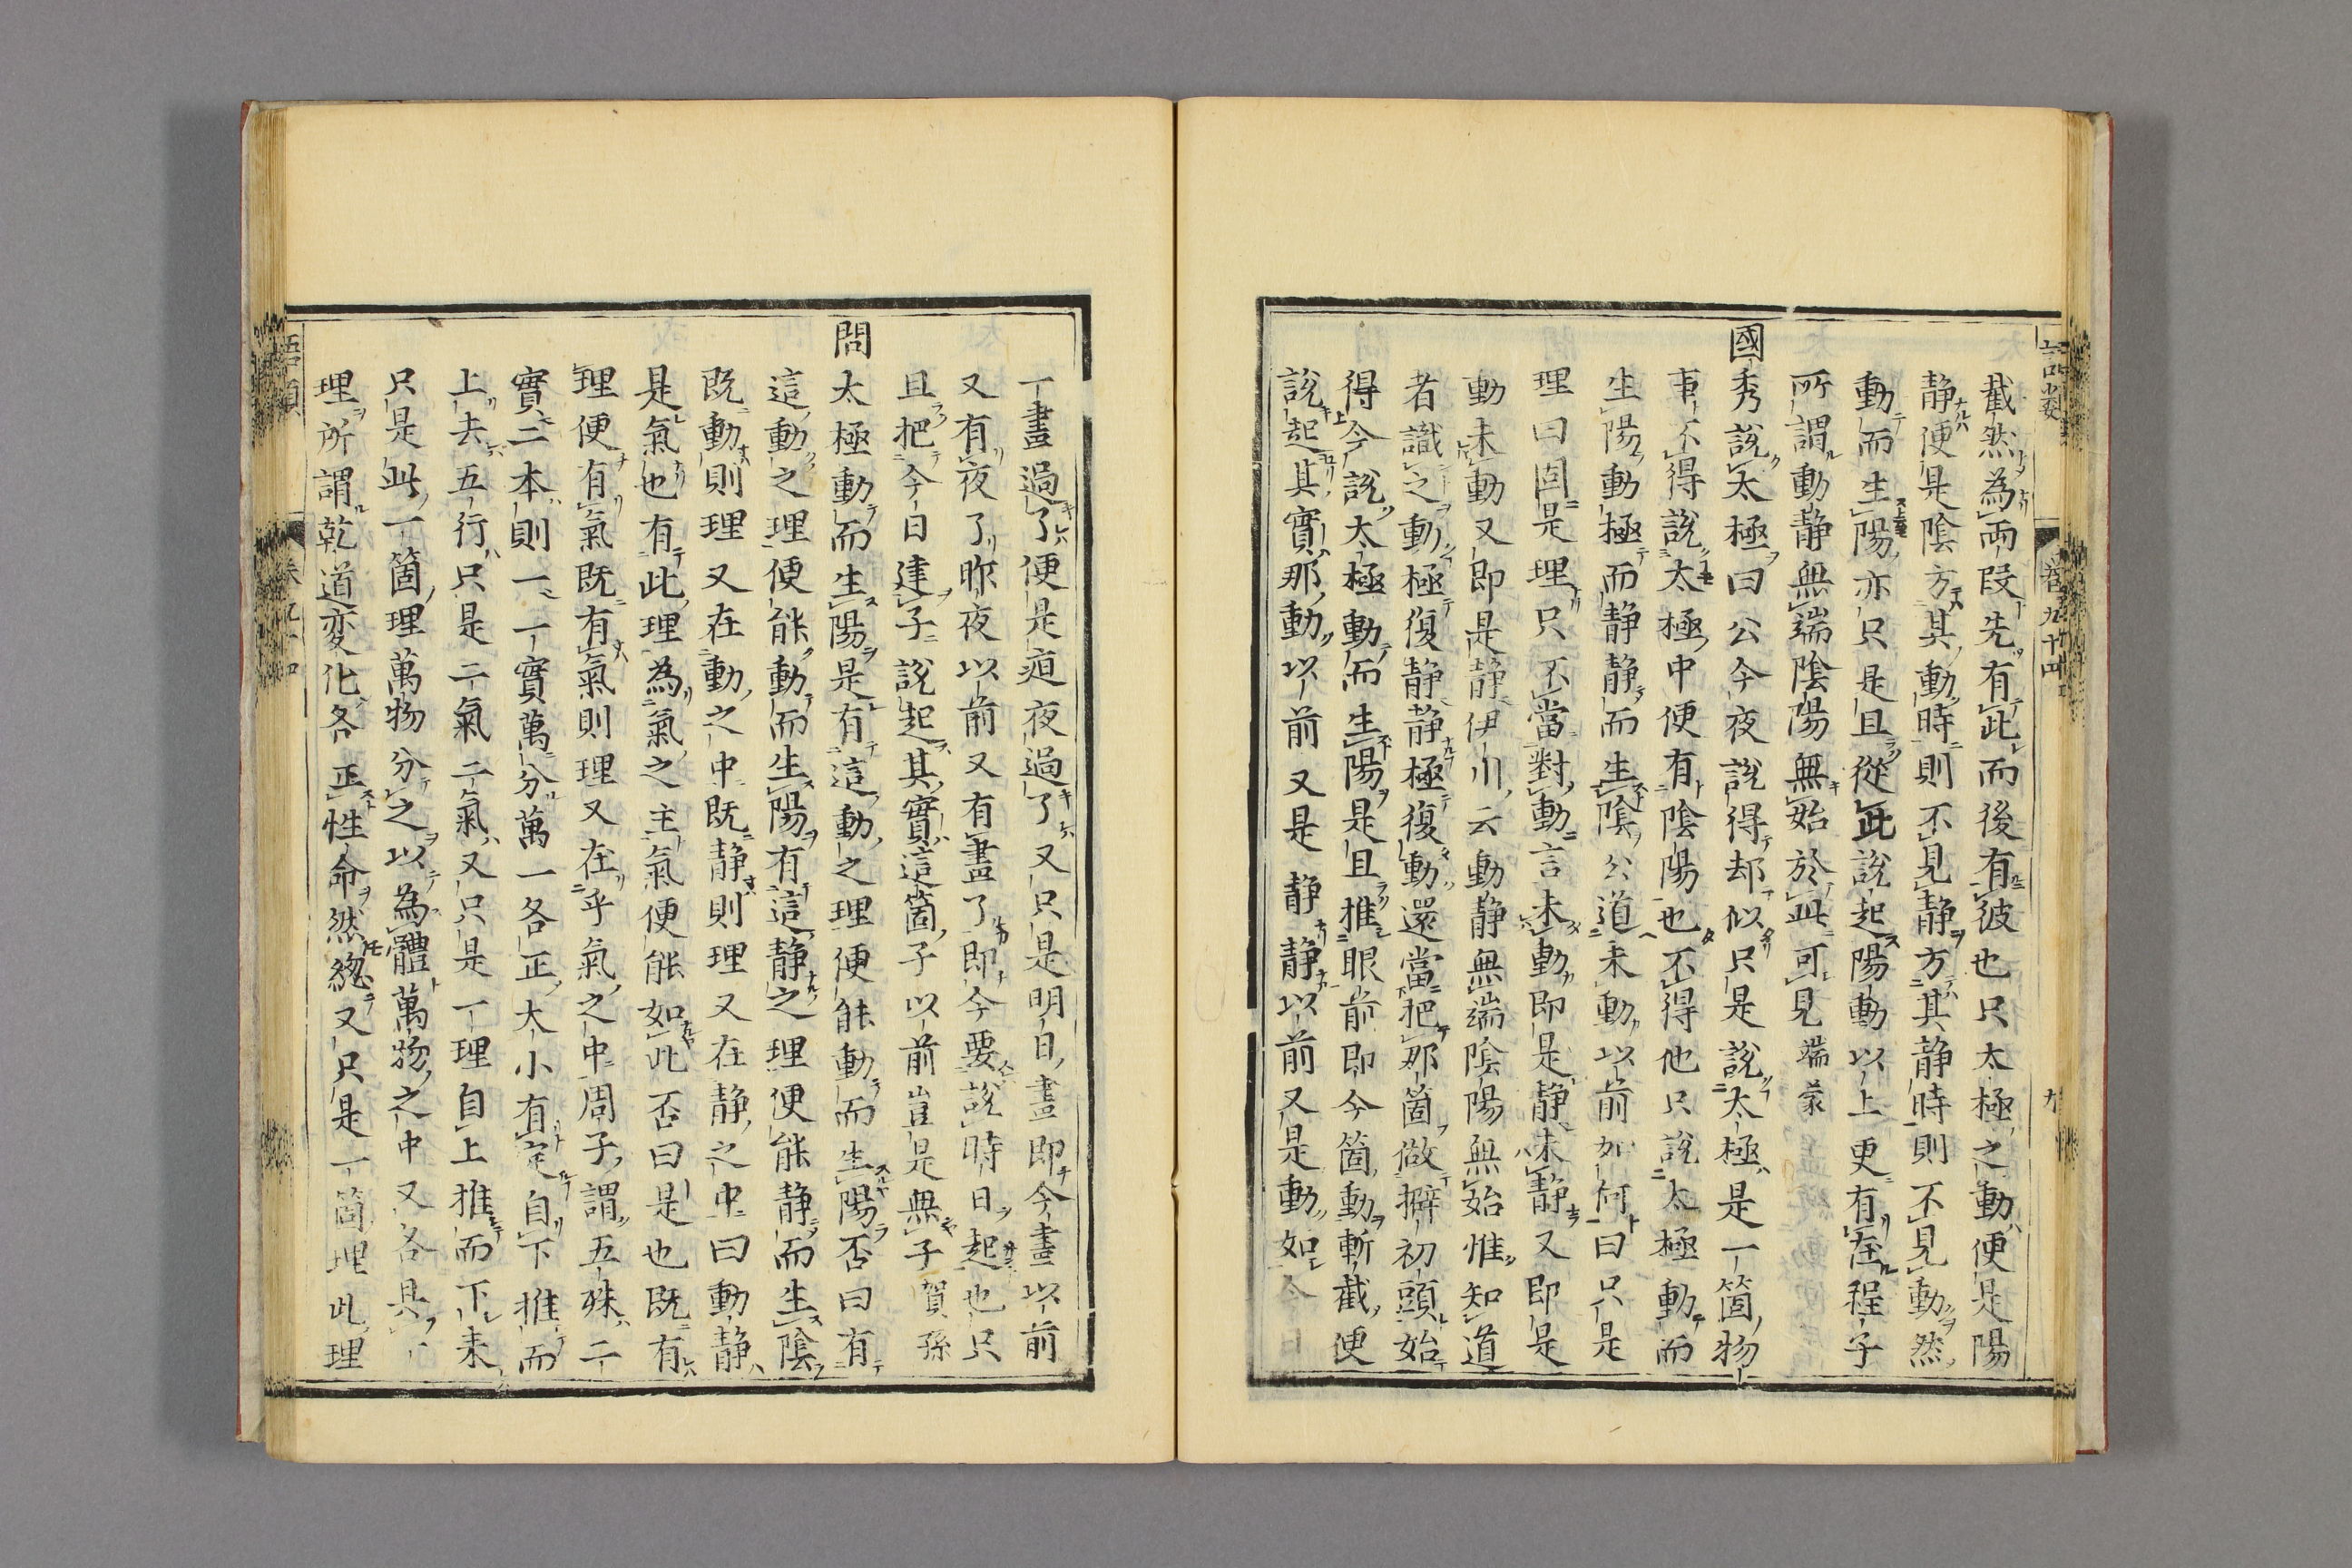 截然為兩段先有此而後有彼也只太極之動便是陽
静便是陰方其動時則不見静方其静時則不見動然
動而生陽亦只是且從此說起陽動以上更有在程子
所謂動静無端陰陽無始於此可見端蒙
國秀說太極曰公今夜說得却似只是說太極是一箇物
事不得說太極中便有陰陽也不得他只說太極動而
生陽動極而静静而生陰公道未動以前如何曰只是
理曰固是理只不當對動言未動即是静未静又即是
動未動又即是静伊川云動静無端陰陽無始惟知道
者識之動極復静静極復動還當把那箇做擗初頭始
得今說太極動而生陽是且推眼前即今箇動斬截便
說起其實那動以前又是静静以前又是動如今日
一晝過了便是夜夜過了又只是明日晝即今晝以前
又有夜了昨夜以前又有晝了即今要說時日起也只
且把今日建子說起其實這箇子以前豈是無子賀孫
問太極動而生陽是有這動之理便能動而生陽否曰有
這動之理便能動而生陽有這静之理便能静而生陰
既動則理又在動之中既静則理又在静之中曰動静
是氣也有此理為氣之主氣便能如此否曰是也既有
理便有氣既有氣則理又在乎氣之中周子謂五殊二
實二本則一一實萬分萬一各正大小有定自下推而
上去五行只是二氣二氣又只是一理自上推而下来
只是此一箇理萬物分之以為體萬物之中又各具一
理所謂乾道変化各正性命然緫又只是一箇理此理
卷九十四
九